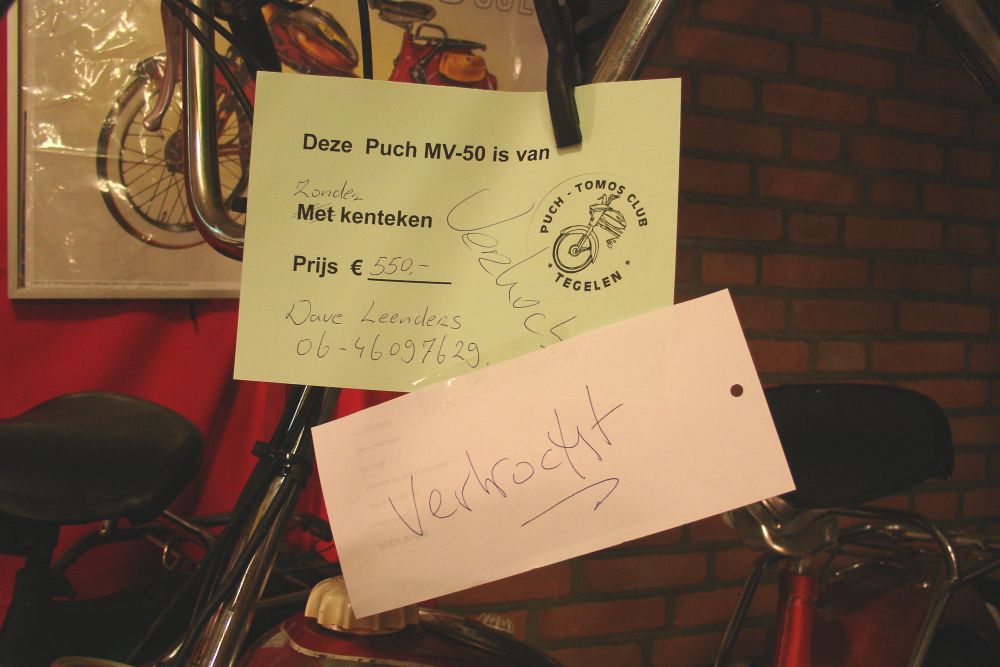 Deze Puch MV-50 is van
Zonder
Met kenteken
Prijs € 550,-
Dave Leenders
06-46097629.
PUCH - TOMOS CLUB
* TEGELEN *
Verkocht